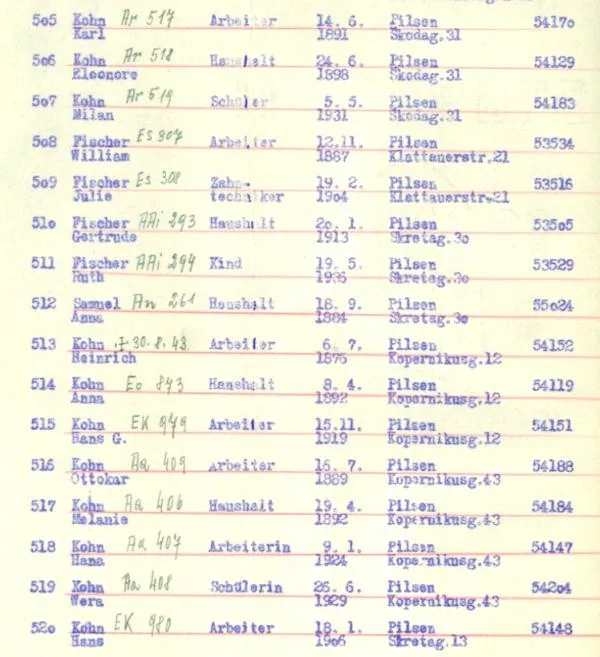 505 Kohn Ar 517 Arbeiter 14. 6. Pilsen 54170
Karl 1891 Skodag.31
506 Kohn Ar 518 Haushalt 24. 6. Pilsen 54129
Eleonore 1898 Skodag.31
507 Kohn Ar 519 Schüler 5. 5. Pilsen 54183
Milan 1931 Skodag.31
508 Fischer Es 307 Arbeiter 12.11. Pilsen 53534
William 1887 Klattauerstr.21
509 Fischer Es 308 Zahn- 19. 2. Pilsen 53516
Julie techniker 1904 Klattauerstr.21
510 Fischer AAi 293 Haushalt 20. 1. Pilsen 53505
Gertrude 1913 Skretag.30
511 Fischer AAi 294 Kind 19. 5. Pilsen 53529
Ruth Skretag.30
512 Samuel An 261 Haushalt 18. 9. Pilsen 55024
Anna 1884 Skretag.30
513 Kohn 30.8.43 Arbeiter 6. 7. Pilsen 54152
Heinrich 1876 Kopernikusg.12
514 Kohn Eo 843 Haushalt 8. 4. Pilsen 54119
Anna 1892 Kopernikusg.12
515 Kohn EK 979 Arbeiter 15.11. Pilsen 54151
Hans G. 1919 Kopernikusg.12
516 Kohn Aa 409 Arbeiter 16. 7. Pilsen 54188
Ottokar 1889 Kopernikusg.43
517 Kohn Aa 406 Haushalt 19. 4. Pilsen 54184
Melanie 1892 Kopernikusg.43
518 Kohn Aa 407 Arbeiterin 9. 1. Pilsen 54147
Hana 1924 Kopernikusg.43
519 Kohn Aa 408 Schülerin 26. 6. Pilsen 54204
Wera 1929 Kopernikusg.43
520 Kohn EK 980 Arbeiter 18. 1. Pilsen 54148
Hans 1906 Skretag.13